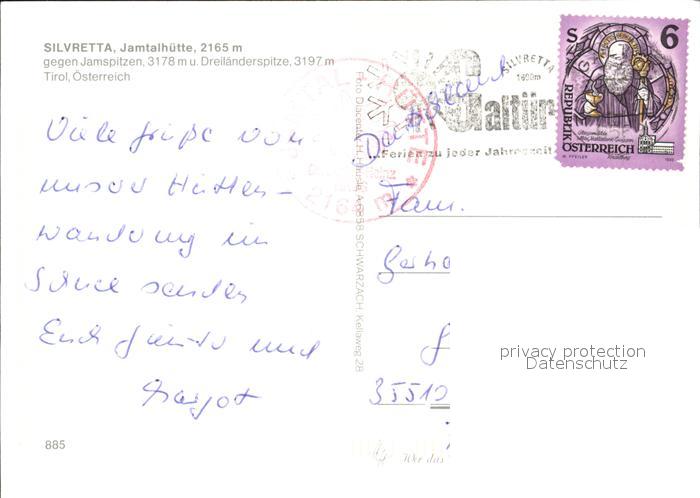 SILVRETTA, Jamtalhütte, 2165 m
gegen Jamspitzen, 3178 m u. Dreiländerspitze, 3197 m
Tirol, Österreich
Viele Grüße von
unser Hütten-
wanderung im
Schnee senden
Euch Günter und
Margot
885
Foto Duicentz, H. Häusle, A-6858 SCHWARZACH, Kellaweg 28
2164 m
SILVRETTA
1600m
Galtür
...Ferien zu jeder Jahreszeit
Deutschland
S 6
REPUBLIK
ÖSTERREICH
Fam.
Gerha
G
35510
privacy protection
Datenschutz
Wer das